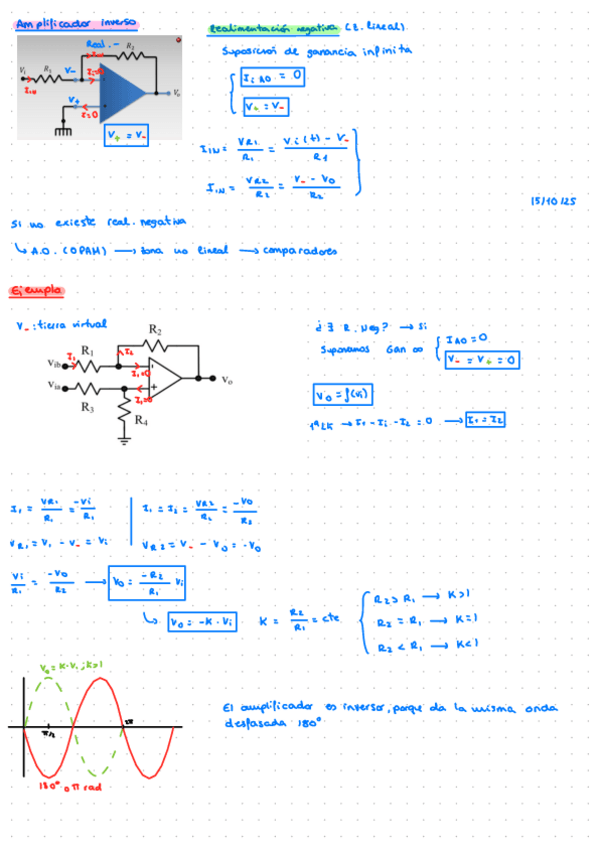 Amplificador inverso
Realimentación negativa (Z. lineal)
Suposición de ganancia infinita
Real. -
R2
Vi
R1
V-
Ii=0
IIN
V+
I=0
Vo
V+ = V-
Ii AO = 0
V+ = V-
IIN = VR1/R1 = Vi(t) - V-/R1
IIN = VR2/R2 = V- - Vo/R2
15/10/25
Si no exieste real. negativa
↳ A.O. (OPAM) → zona no lineal → comparadores
Ejemplo
V- : tierra virtual
R2
I2
vib
I1
R1
Ii=0
via
R3
Ii=0
R4
vo
¿∃ R. Neg? → Si
Suponamos Gan ∞
IAO = 0
V- = V+ = 0
Vo = f(Vi)
1ª LK → I1 - Ii - I2 = 0 → I1 = I2
I1 = VR1/R1 = -Vi/R1
I1 = I2 = VR2/R2 = -Vo/R2
VR1 = V1 - V- = Vi
VR2 = V- - Vo = -Vo
Vi/R1 = -Vo/R2 → Vo = -R2/R1 Vi
↳ Vo = -K · Vi
K = R2/R1 = cte
R2 > R1 → K>1
R2 = R1 → K=1
R2 < R1 → K<1
Vo = K·Vi ; K>1
π/2
2π
180º o π rad
El amplificador es inverso, porque da la misma onda
desfasada 180º